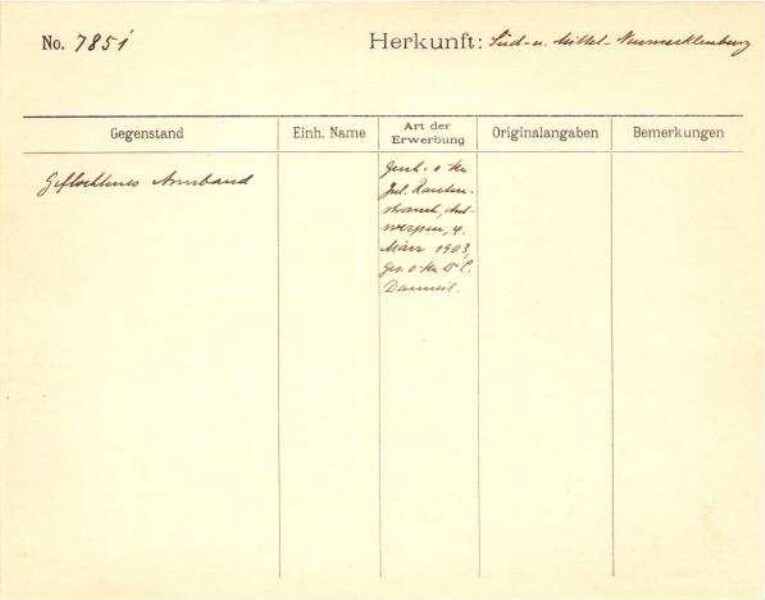 No. 7851 Herkunft: Süd- u. Mittel-Neumecklenburg
Gegenstand Einh. Name Art der Erwerbung Originalangaben Bemerkungen
Geflochtenes Armband
Gesch. v. Hn
Jul. Rauten-
strauch, Ant-
werpen, 4.
März 1903,
ges. v. Hn